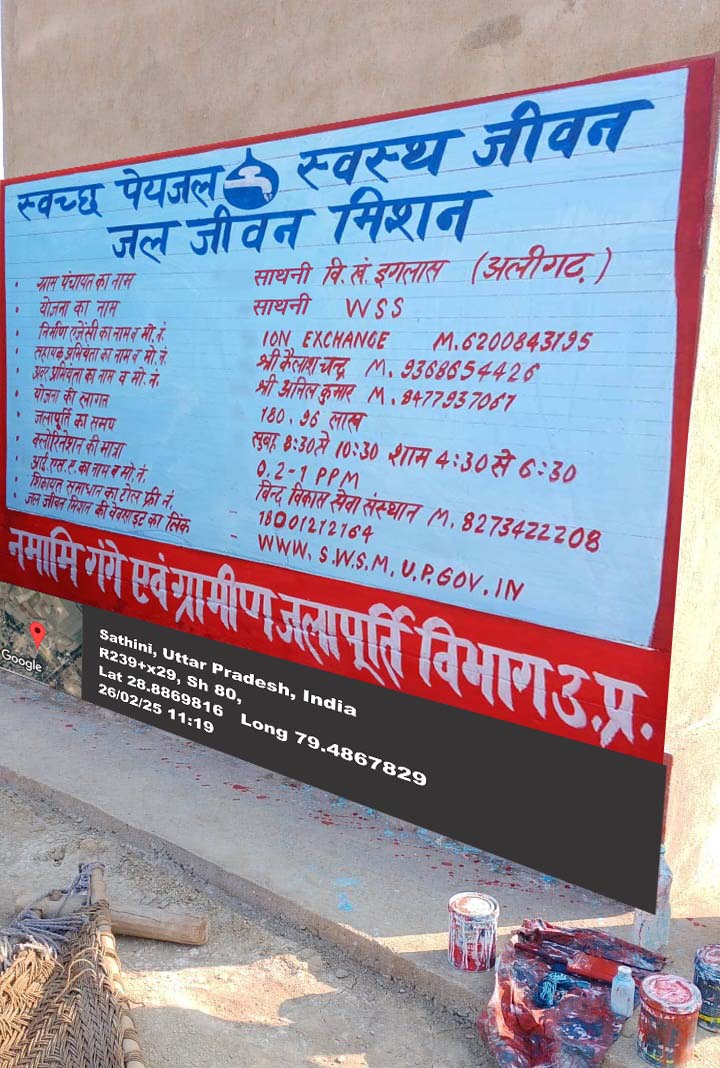 स्वच्छ पेयजल स्वस्थ जीवन
जल जीवन मिशन
• ग्राम पंचायत का नाम साथनी वि. खं. इगलास (अलीगढ़)
• योजना का नाम साथनी WSS
• निर्माण एजेंसी का नाम व मो. नं. ION EXCHANGE M.6200843195
• सहायक अभियंता का नाम व मो. नं. श्री कैलाश चन्द्र M. 9368654426
• अवर अभियंता का नाम व मो. नं. श्री अनिल कुमार M. 8477937067
• योजना की लागत 180.96 लाख
• जलापूर्ति का समय सुबह 8:30 से 10:30 शाम 4:30 से 6:30
• क्लोरिनेशन की मात्रा 0.2-1 PPM
• आई. एस. ए. का नाम व मो. नं. बिन्द विकास सेवा संस्थान M. 8273422208
• शिकायत समाधान का टोल फ्री नं. - 18001212164
• जल जीवन मिशन की वेबसाइट का लिंक - WWW. S.W.S.M. U.P.GOV.IN
नमामि गंगे एवं ग्रामीण जलापूर्ति विभाग उ.प्र.
Google
Sathini, Uttar Pradesh, India
R239+x29, Sh 80,
Lat 28.8869816 Long 79.4867829
26/02/25 11:19